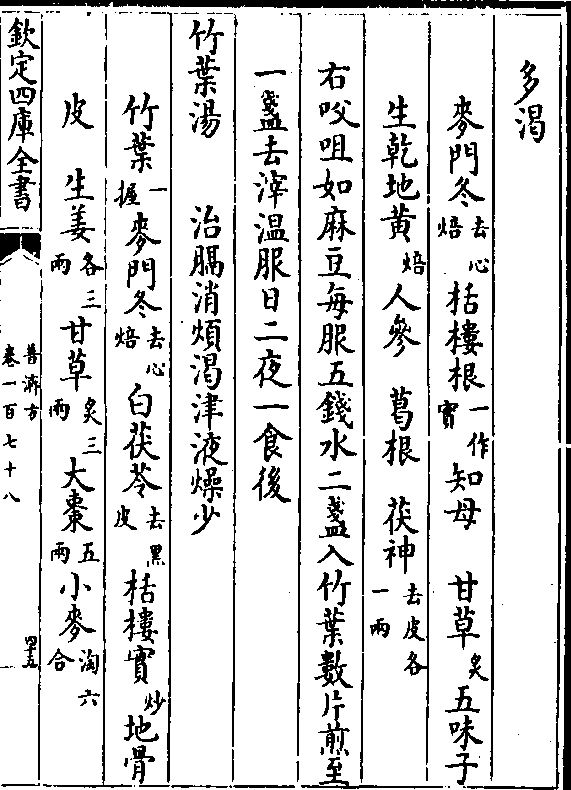 多渴
麥門冬去心焙 栝樓根一作實 知母 甘草炙 五味子
生乾地黄焙 人參 葛根 茯神去皮各一兩
右㕮咀如麻豆每服五錢水二盞入竹葉數片煎至
一盞去滓温服日二夜一食後
竹葉湯 治膈消煩渴津液燥少
竹葉一握 麥門冬去心焙 白茯苓去黑皮 栝樓實炒 地骨
皮 生姜各三兩 甘草炙三兩 大棗五兩 小麥淘六合
欽定四庫全書 普濟方卷一百七十八 四十五